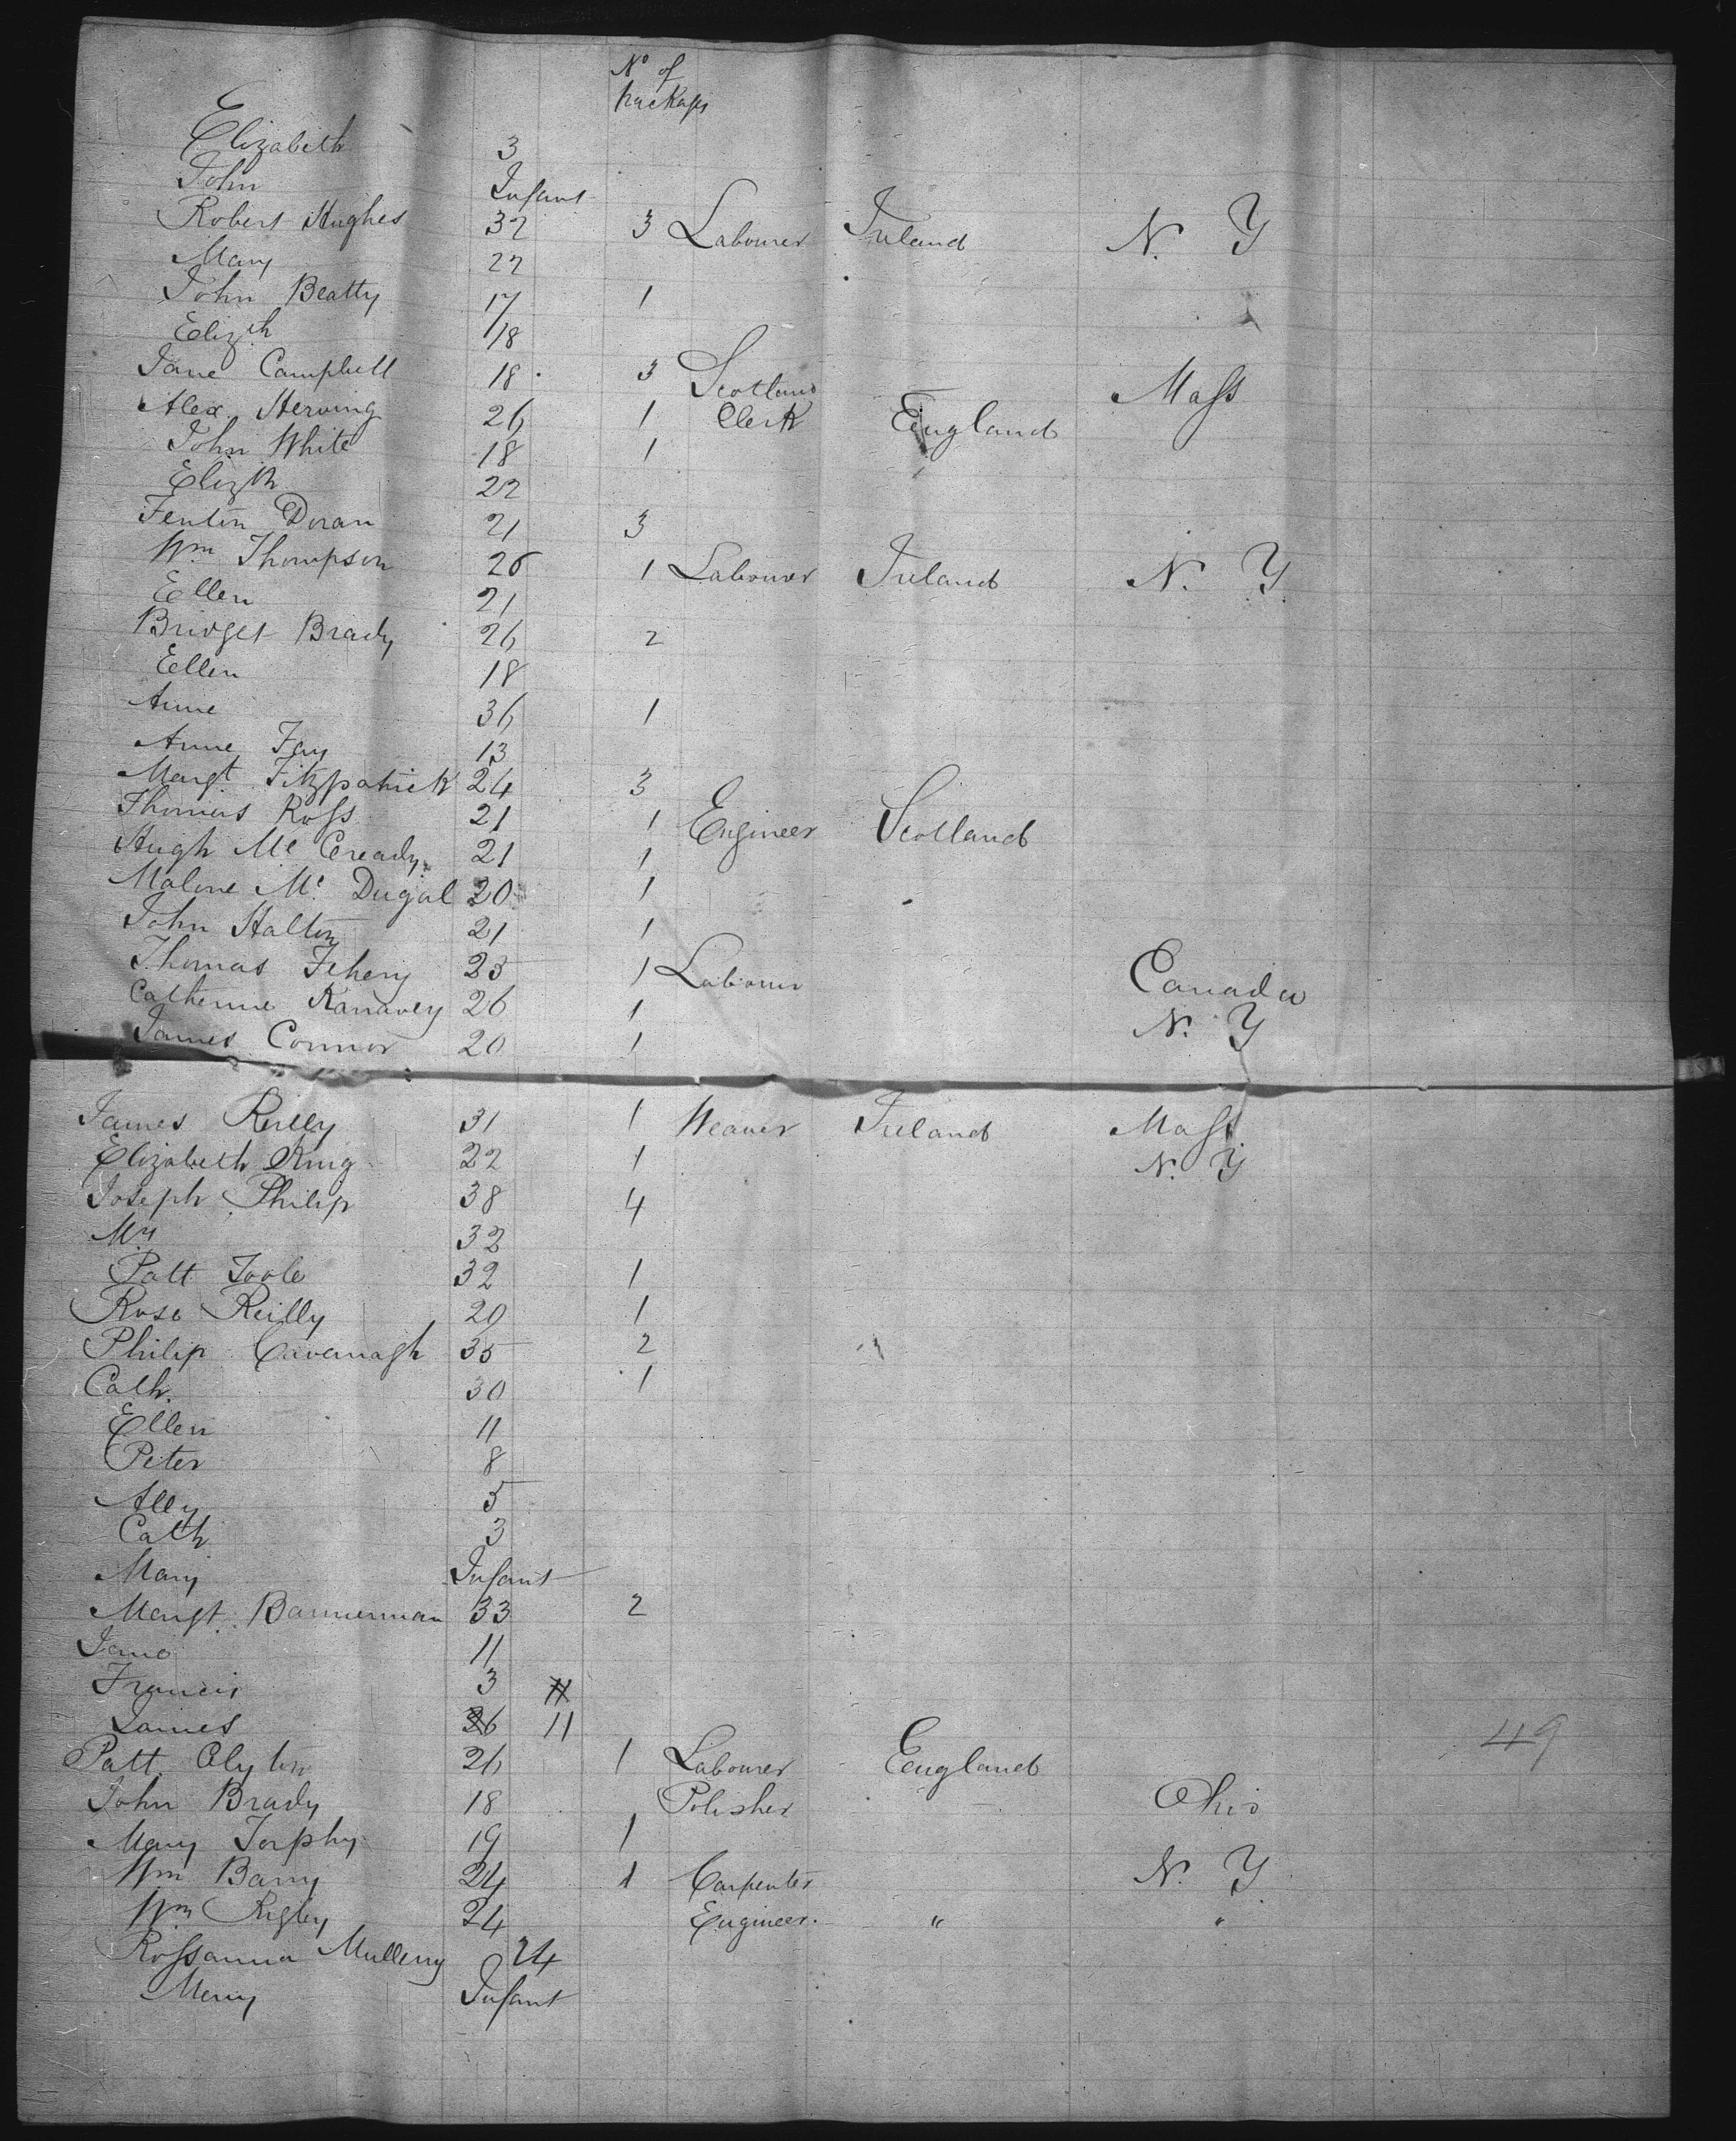 No of
packages
Elizabeth 3
John Infant
Robert Hughes 32 3 Labourer Ireland N. Y
Mary 22
John Beatty 17 1
Elizth 18
Jane Campbell 18 3 Scotland Mass
Alex. Herving 26 1 Clerk England
John White 18 1
Elizth 22
Fenton Doran 21 3
Wm Thompson 26 1 Labourer Ireland N. Y
Ellen 21
Bridget Brady 26 2
Ellen 18
Anne 36 1
Anne Fay 13
Margt Fitzpatrick 24 3
Thomas Ross 21 1 Engineer Scotland
Hugh Mc Cready 21 1
Malone Mc Dugal 20 1
John Halton 21 1
Thomas Fehery 23 1 Labourer Canada
Catherine Kanavey 26 1 N. Y
James Connor 20 1
James Reilly 31 1 Weaver Ireland Mass
Elizabeth King 22 1 N. Y
Joseph Philip 38 4
Mrs 32
Patt Toole 32 1
Rose Reilly 20 1
Philip Cavanagh 35 2
Cath. 30 1
Ellen 11
Peter 8
Ally 5
Cath 3
Mary Infant
Margt. Bannerman 33 2
Jane 11
Francis 3 11
James 26 11
Patt. Clyton 26 1 Labourer England 49
John Brady 18 Polisher Ohio
Mary Torphy 19 1
Wm Barry 24 1 Carpenter N. Y
Wm Rigley 24 Engineer. " "
Rossanna Mulleny 24
Mary Infant